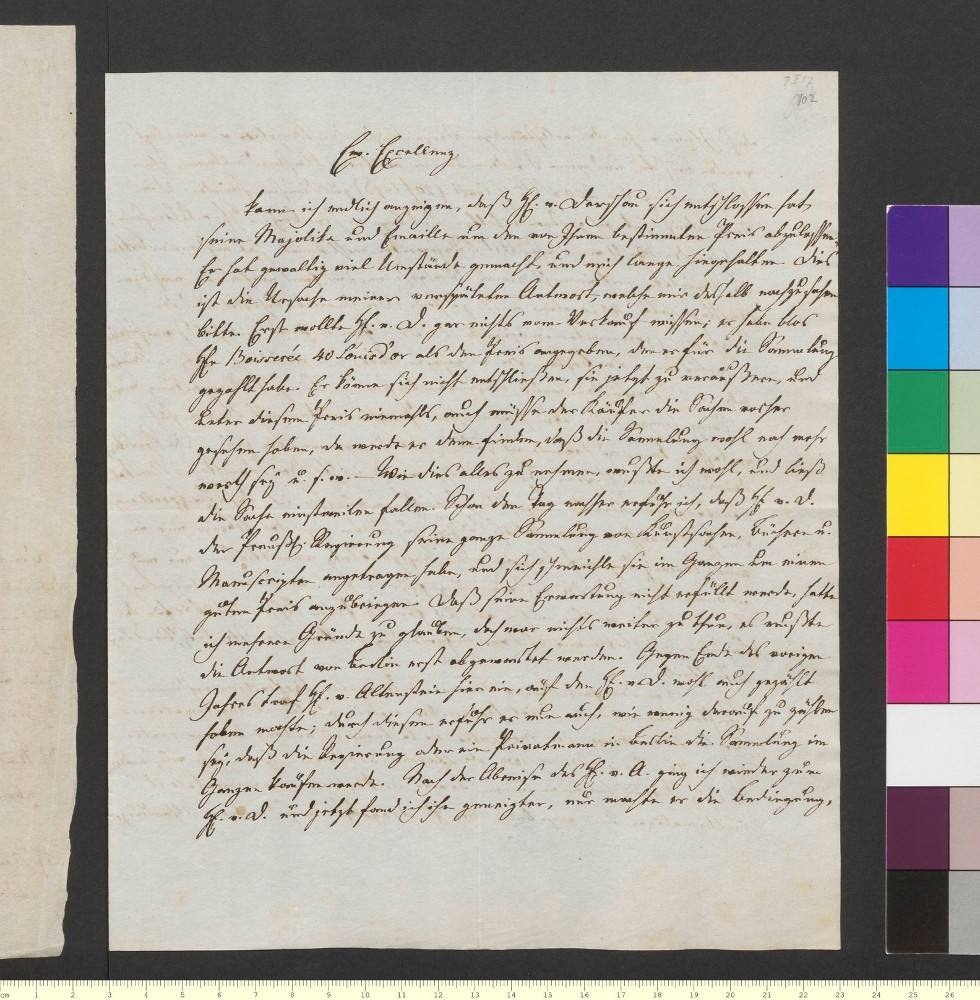 7517
102
Ew. Excellenz
kann ich endlich anzeigen, daß H. v. Derschau sich entschlossen hat
seine Majolika und Emaille um den von Ihnen bestimmten Preis abzulassen.
Er hat gewaltig viel Umstände gemacht, und mich lange hingehalten. Dies
ist die Ursache meiner verspäteten Antwort, welche mir deshalb nachzusehen
bitte. Erst wollte H. v. D. gar nichts vom Verkauf wissen; er habe blos
Hn Boisserée 40 Louisd'or als den Preis angegeben, den er für die Sammlung
gezahlt habe. Er könne sich nicht entschließen, sie jetzt zu veräußern, und
unter diesem Preis niemahls, auch müsse der Käufer die Sachen vorher
gesehen haben, da werde er dann finden, daß die Sammlung wohl noch mehr
werth sey u. s. w. – Wie dies alles zu nehmen, wußte ich wohl, und ließ
die Sache einstweilen fallen. Schon den Tag nachher erfuhr ich, daß H. v. D.
der Preuß. Regierung seine ganze Sammlung von Kunstsachen, Büchern u.
Manuscripten angetragen habe, und sich schmeichle sie im Ganzen um einen
guten Preis anzubringen. Daß seine Erwartung nicht erfüllt werde, hatte
ich mehrere Gründe zu glauben, doch war nichts weiter zu thun, es mußte
die Antwort von Berlin erst abgewartet werden. Gegen Ende des vorigen
Jahres traf H. v. Altenstein hier ein, auf den H. v. D. wohl auch gezählt
haben mochte; durch diesen erfuhr er nun auch, wie wenig darauf zu zählen
sey, daß die Regierung oder ein Privatmann in Berlin die Sammlung im
Ganzen kaufen werde. Nach der Abreise des H. v. A. ging ich wieder zum
H. v. D. und jetzt fand ich ihn geneigter, nur machte er die Bedingung,